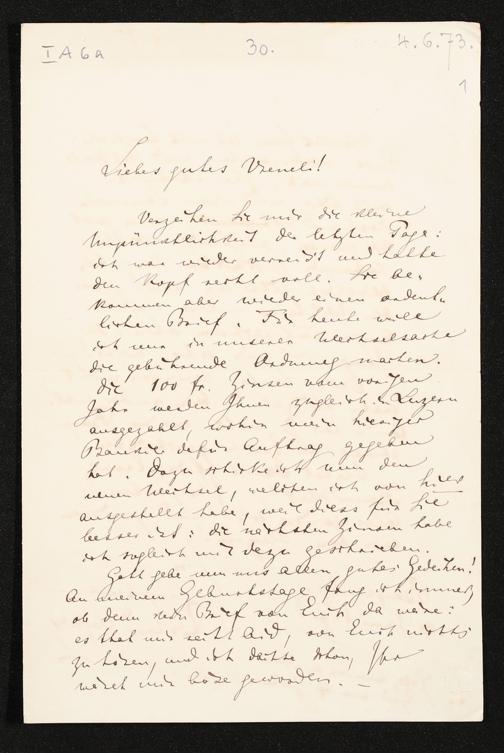 I A 6 a
30.
4.6.73.
1
Liebes gutes Vreneli!
Verzeihen Sie mir die kleine
Unpünktlichkeit der letzten Tage:
ich war wieder verreist und hatte
den Kopf recht voll. Sie be-
kommen aber wieder einen ordent-
lichen Brief. Für heute will
ich nur in unserer Wechselsache
die gebührende Ordnung machen.
Die 100 fr. Zinsen vom vorigen
Jahr werden Ihnen zugleich in Luzern
ausgezahlt, wohin mein hiesiger
Bankier dafür Auftrag gegeben
hat. Dazu schicke ich nun den
neuen Wechsel, welchen ich von hier
ausgestellt habe, weil diess für Sie
besser ist: die nächsten Zinsen habe
ich sogleich mit dazu geschrieben.
Gott gebe nun uns allen gutes Gedeihen!
An meinem Geburtstage frug ich immer,
ob denn kein Brief von Euch da wäre:
es that mir recht leid, von Euch nichts
zu hören, und ich dachte schon, Ihr
wäret mir böse geworden. —